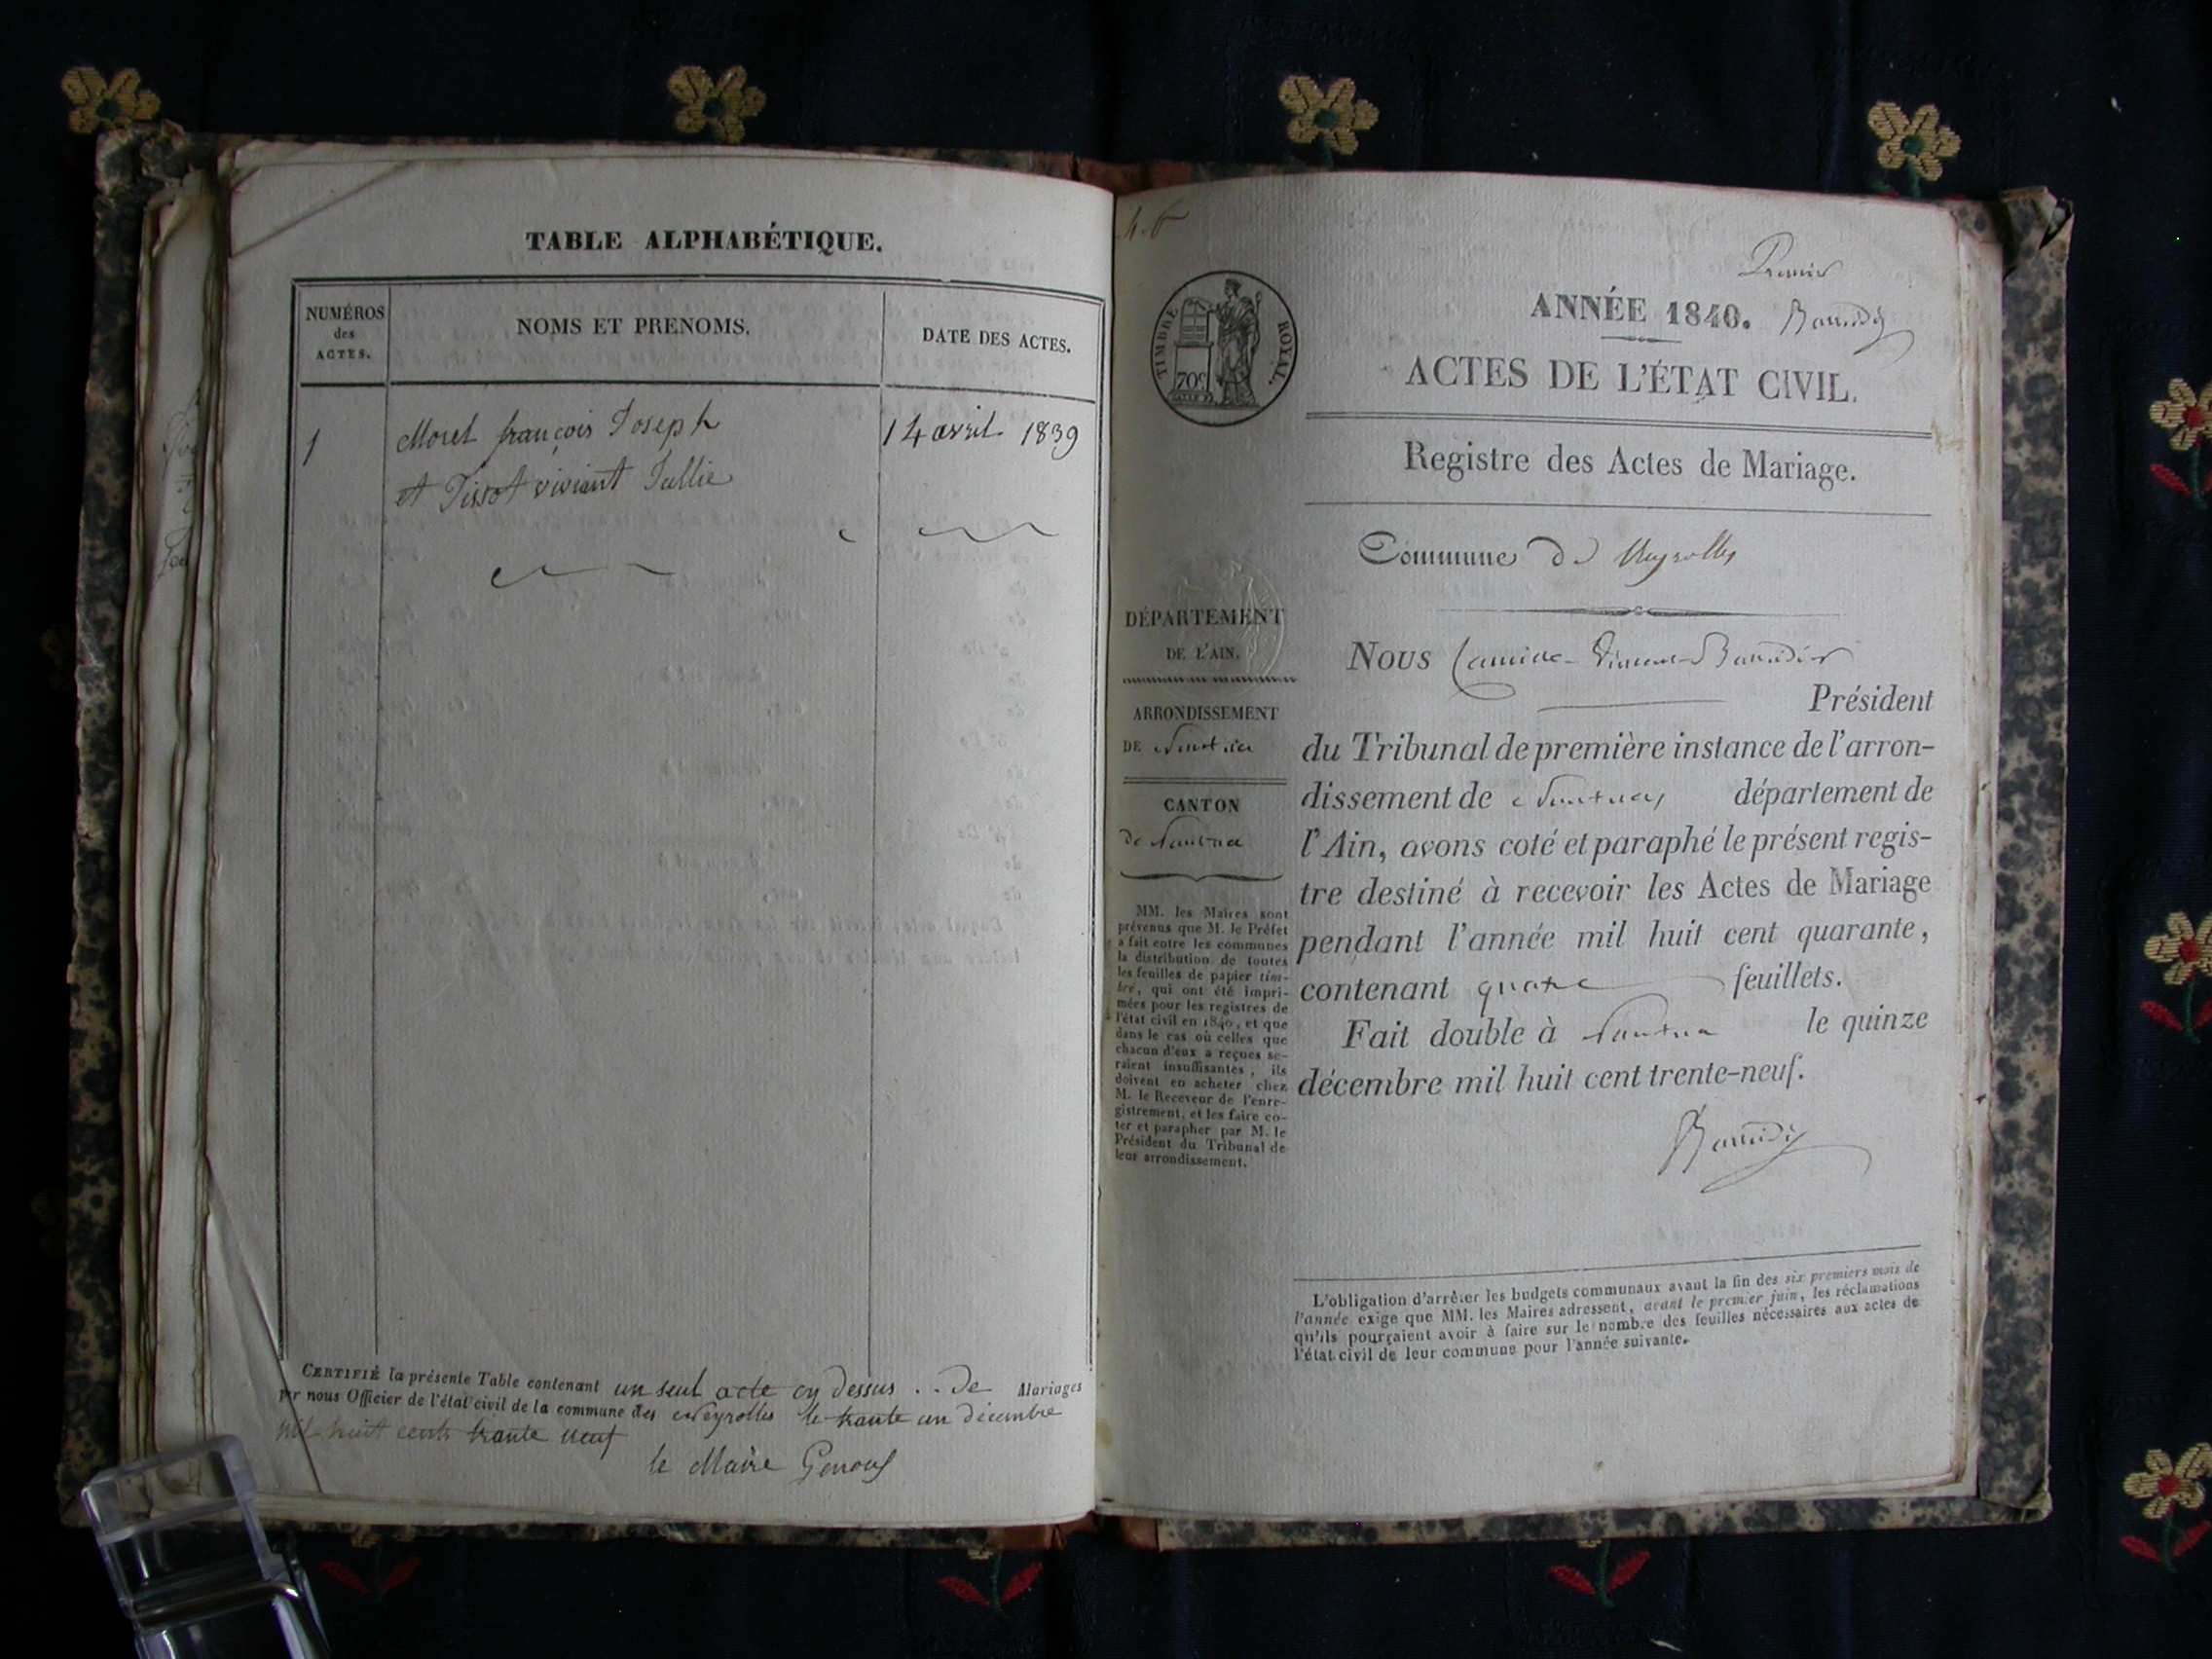 TABLE ALPHABÉTIQUE.
NUMÉROS
des
ACTES.
NOMS ET PRENOMS.
DATE DES ACTES.
1
Morel françois Joseph
14 avril 1839
et Tissot viviant Jullie
CERTIFIÉ la présente Table contenant un seul acte cy dessus .. de Mariages
par nous Officier de l'état civil de la commune des Neyrolles le trante un décembre
mil huit cents trante neuf
le Maire
TIMBRE ROYAL.
70c
Premier
ANNÉE 1840.
ACTES DE L'ÉTAT CIVIL.
Registre des Actes de Mariage.
Commune de Neyrolles
DÉPARTEMENT
DE L'AIN.
ARRONDISSEMENT
DE Nantua
CANTON
de Nantua
MM. les Maires sont
prévenus que M. le Préfet
a fait entre les communes
la distribution de toutes
les feuilles de papier tim-
bré, qui ont été impri-
mées pour les registres de
l'état civil en 1840, et que
dans le cas où celles que
chacun d'eux a reçues se-
raient insuffisantes, ils
doivent en acheter chez
M. le Receveur de l'enre-
gistrement, et les faire co-
ter et parapher par M. le
Président du Tribunal de
leur arrondissement.
Nous
Président
du Tribunal de première instance de l'arron-
dissement de Nantua, département de
l'Ain, avons coté et paraphé le présent regis-
tre destiné à recevoir les Actes de Mariage
pendant l'année mil huit cent quarante,
contenant quatre feuillets.
Fait double à Nantua le quinze
décembre mil huit cent trente-neuf.
L'obligation d'arrêter les budgets communaux avant la fin des six premiers mois de
l'année exige que MM. les Maires adressent, avant le premier juin, les réclamations
qu'ils pourraient avoir à faire sur le nombre des feuilles nécessaires aux actes de
l'état civil de leur commune pour l'année suivante.